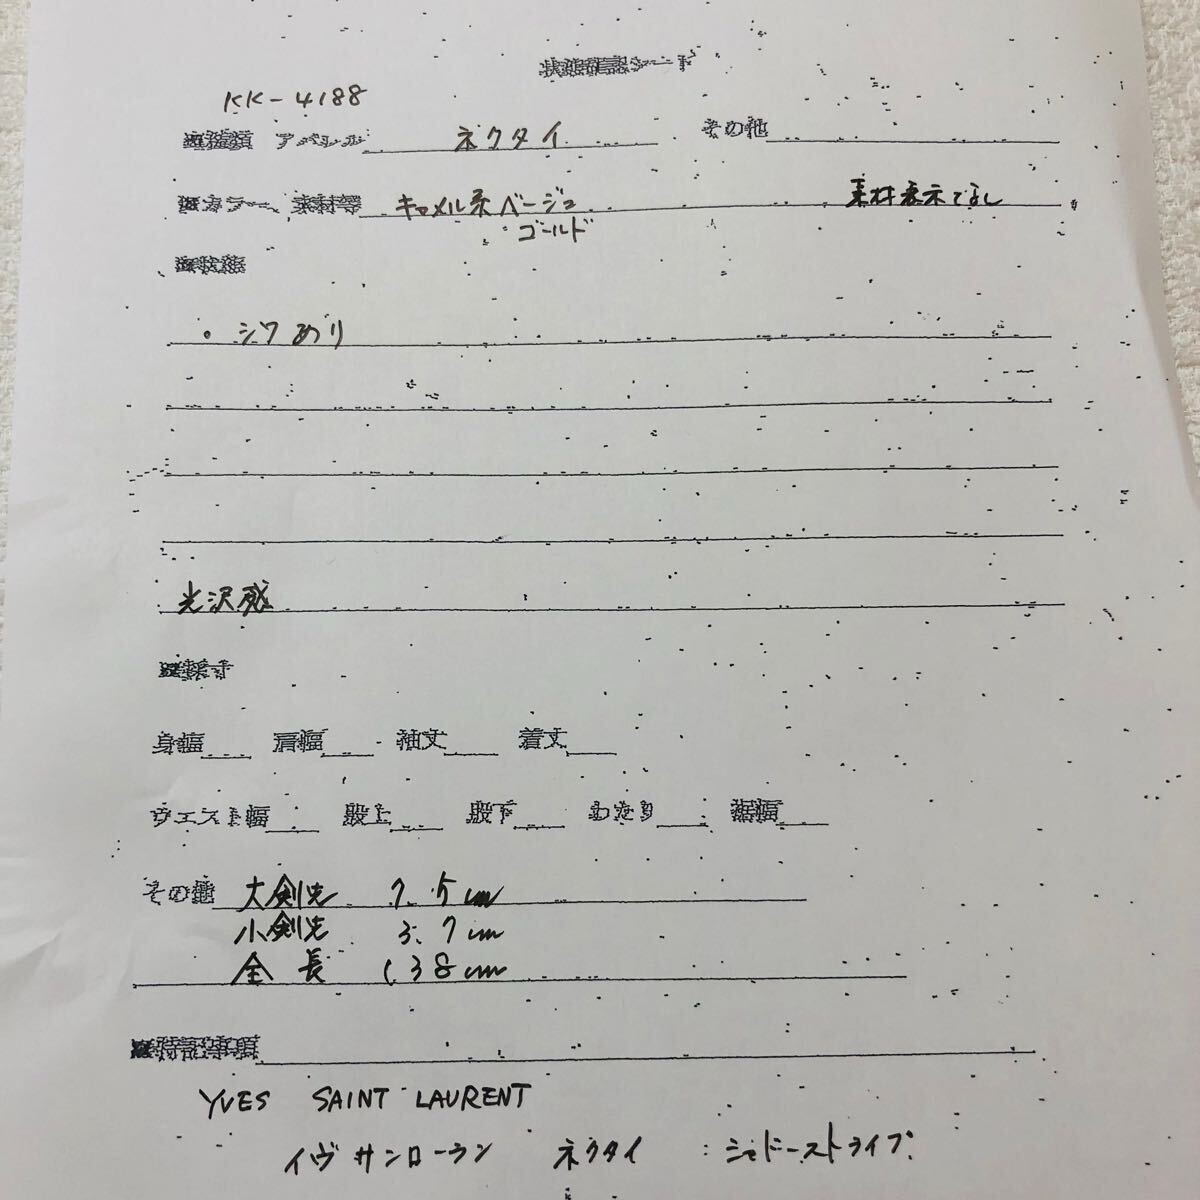 状態確認シート
KK-4188
■種類 アパレル ネクタイ その他
■カラー、素材等 キャメル系ベージュ 素材表示なし
ゴールド
■状態
・シワあり
光沢感
■採寸
身幅 肩幅 袖丈 着丈
ウエスト幅 股上 股下 わたり 裾幅
その他 大剣先 7.5cm
小剣先 3.7cm
全長 138cm
■特記事項
YVES SAINT LAURENT
イヴサンローラン ネクタイ シャドーストライプ